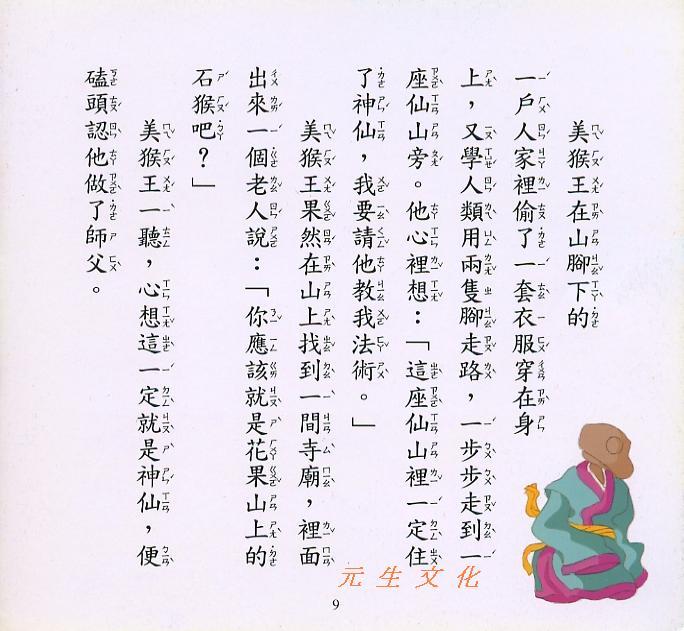 美猴王在山腳下的
一戶人家裡偷了一套衣服穿在身
上，又學人類用兩隻腳走路，一步步走到一
座仙山旁。他心裡想：「這座仙山裡一定住
了神仙，我要請他教我法術。」
美猴王果然在山上找到一間寺廟，裡面
出來一個老人說：「你應該就是花果山上的
石猴吧？」
美猴王一聽，心想這一定就是神仙，便
磕頭認他做了師父。
元生文化
9